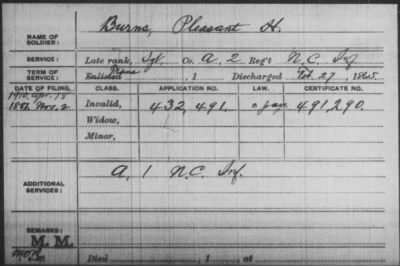 Burns, Pleasant H.
NAME OF
SOLDIER:
SERVICE: Late rank, Sgt. Co. A, 2 Reg't N.C. Inf
TERM OF
SERVICE: Enlisted , 1 Discharged Feb. 27, 1865.
DATE OF FILING. CLASS. APPLICATION NO. LAW. CERTIFICATE NO.
1910, Apr. 18
Nov. 2 Invalid, 432,491. 491,290.
Widow,
Minor,
ADDITIONAL
SERVICES: A, 1 N.C. Inf.
REMARKS:
M. M.
Died , 1 , at